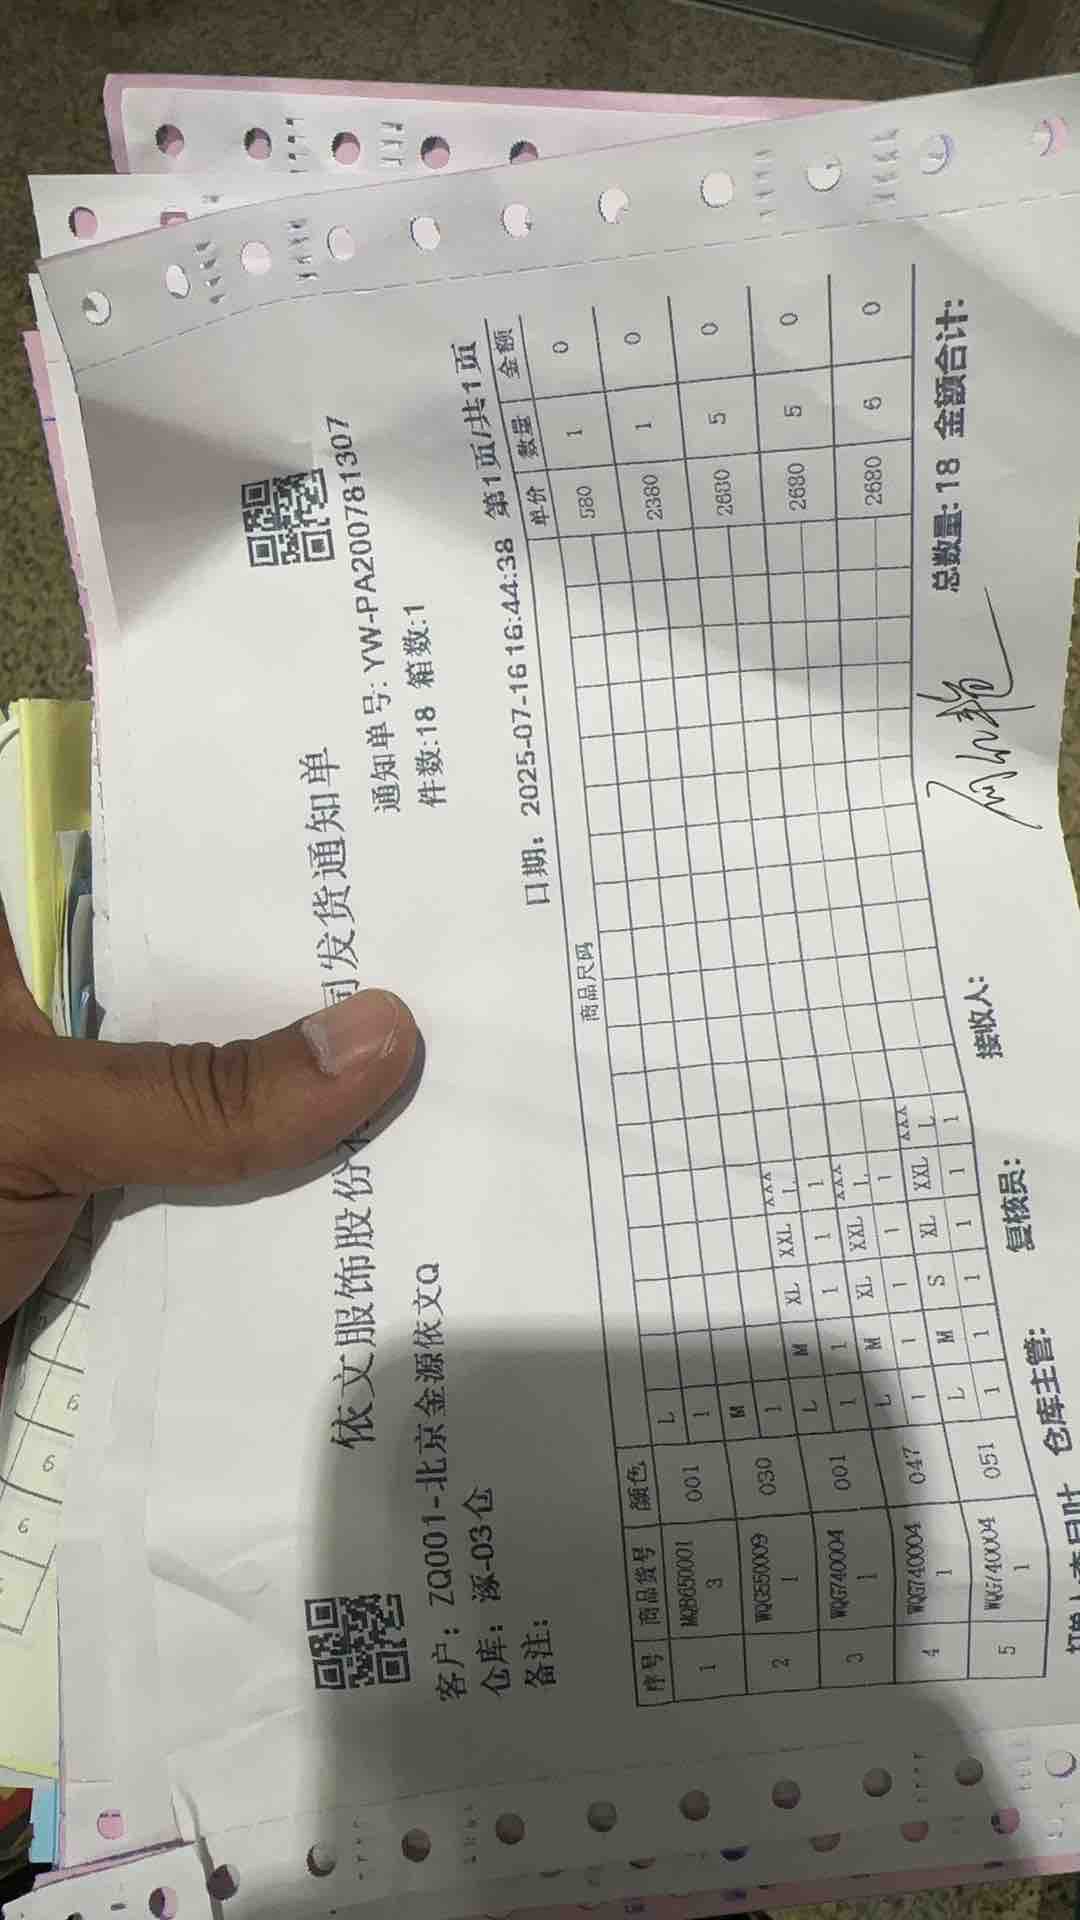 依文服饰股份 司发货通知单
客户：ZQ001-北京金源依文Q 通知单号:YW-PA200781307
仓库：涿-03仓 件数:18 箱数:1
备注：
日期：2025-07-16 16:44:38 第1页/共1页
序号 商品货号 颜色 商品尺码 单价 数量 金额
L
1 MQB650001 3 001 1 580 1 0
M
2 WQG550009 1 030 1 2380 1 0
L M XL XXL XXXL
3 WQG740004 1 001 1 1 1 1 1 2680 5 0
L M XL XXL XXXL
4 WQG740004 1 047 1 1 1 1 1 2680 5 0
L M S XL XXL XXXL
5 WQG740004 1 051 1 1 1 1 1 1 2680 6 0
总数量:18 金额合计:
仓库主管: 复核员: 接收人:
6
6
6